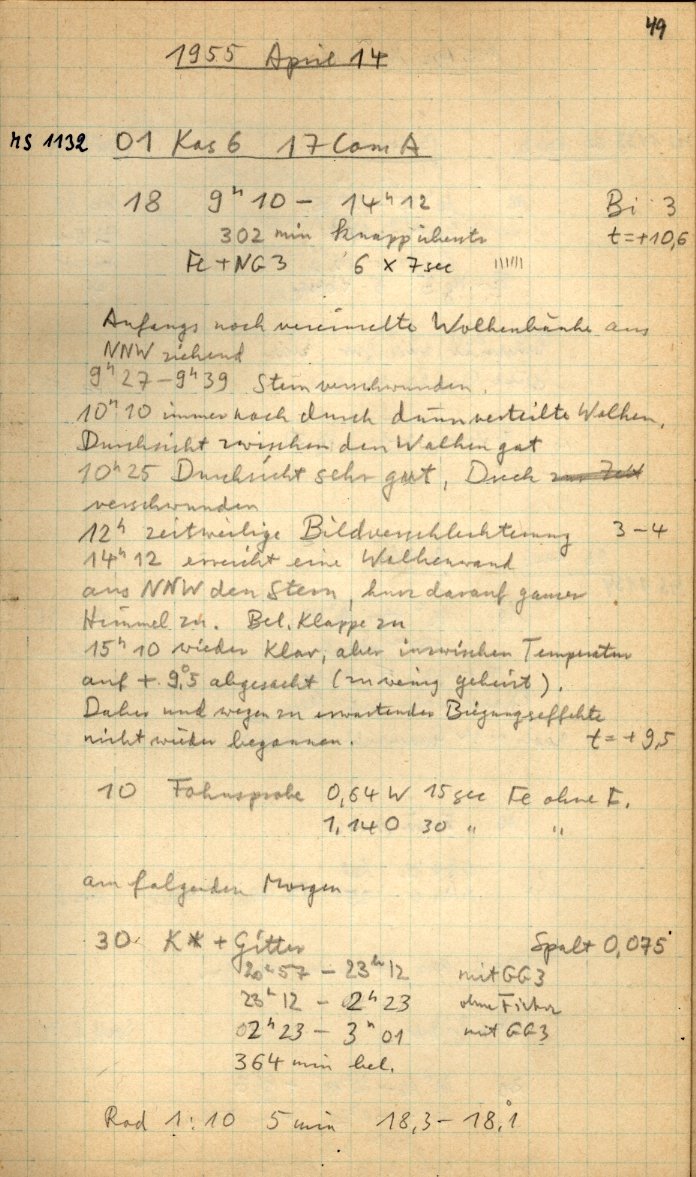 49
1955 April 14
MS 1132 01 Kas 6 17 Com A
18 9ʰ10 – 14ʰ12 Bi 3
302 min knapp t=+10,6
Fe+NG3 6 x 7sec
Anfangs noch vereinzelte Wolkenbänke aus
NNW ziehend
9ʰ27–9ʰ39 Stern verschwunden.
10ʰ10 immer noch durch dünn verteilte Wolken,
Durchsicht zwischen den Wolken gut
10ʰ25 Durchsicht sehr gut,
verschwunden
12ʰ zeitweilige Bildverschlechterung 3–4
14ʰ12 erreicht eine Wolkenwand
aus NNW den Stern, kurz darauf ganzer
Himmel zu. Bel. Klappe zu
15ʰ10 wieder klar, aber inzwischen Temperatur
auf + 9,°5 abgesackt (zu wenig geheizt).
Daher und wegen zu erwartender Biegungseffekte
nicht wieder begonnen. t=+9,5
10 0,64 W 15sec Fe ohne F.
1,14 O 30 " "
am folgenden Morgen
30 K* + Gitter Spalt 0,075
20ʰ57 – 23ʰ12 mit GG3
23ʰ12 – 02ʰ23 ohne Filter
02ʰ23 – 3ʰ01 mit GG3
364 min bel.
Rad 1:10 5 min 18,3 – 18,°1